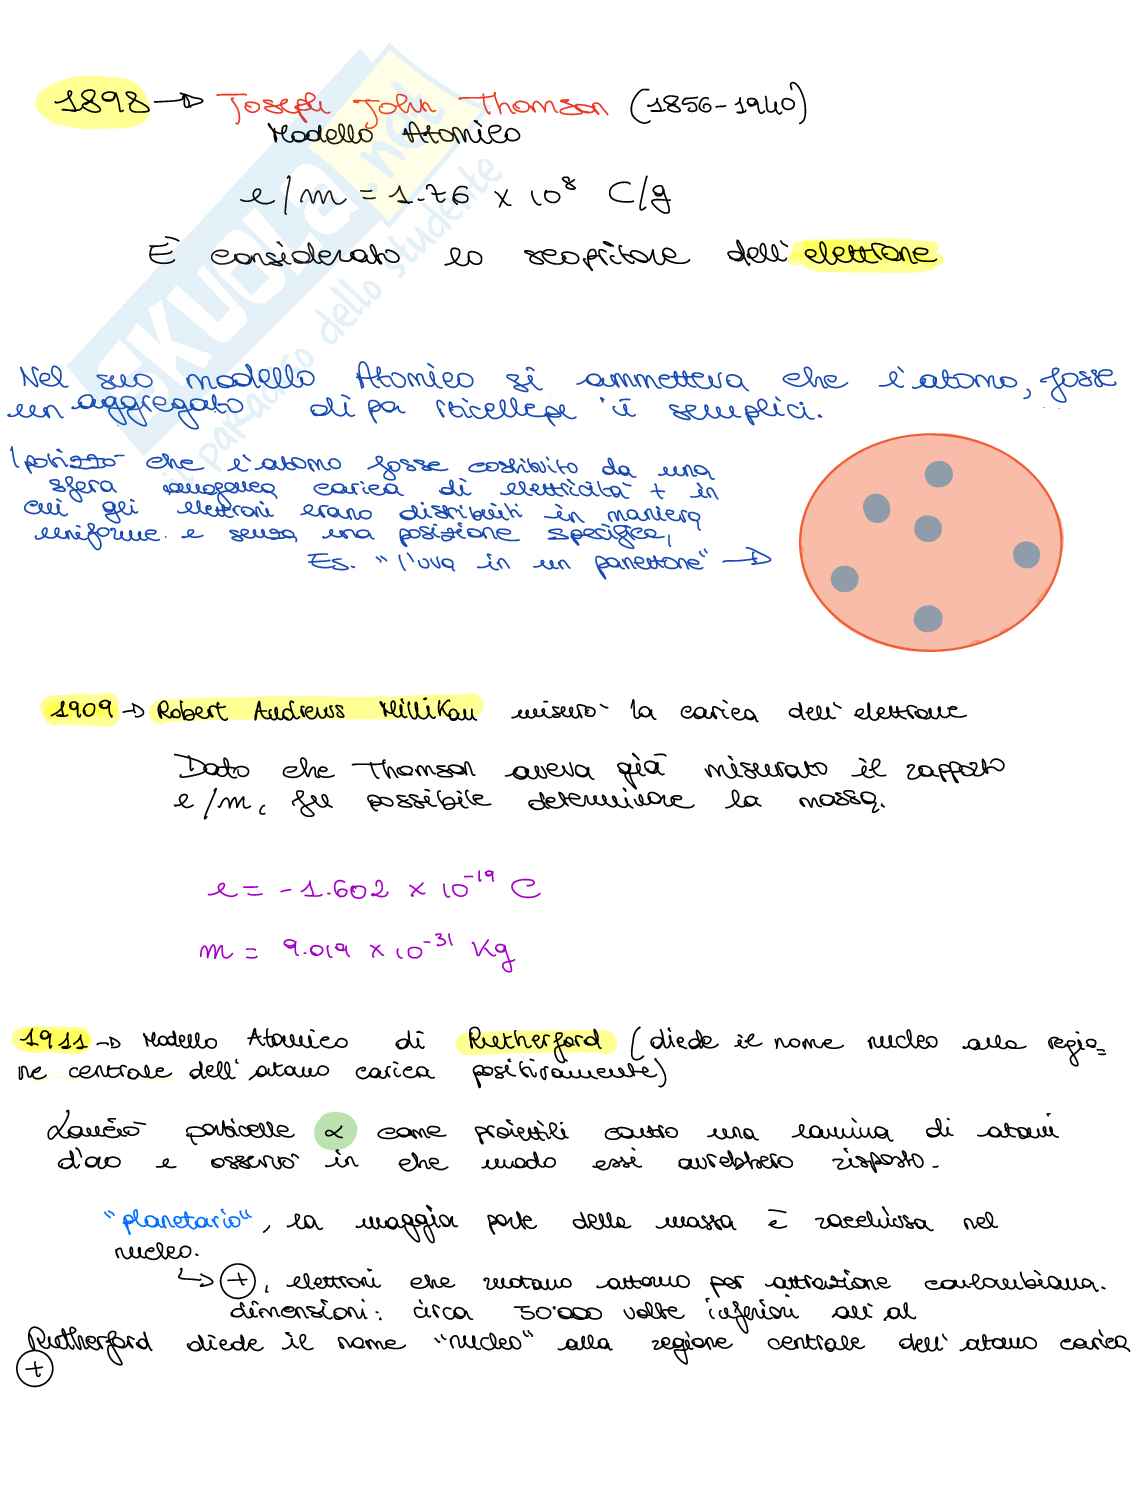 1898 → Joseph John Thomson (1856-1940)
Modello Atomico
e/m = 1.76 x 10⁸ C/g
È considerato lo scopritore dell'elettrone
Nel suo modello Atomico si ammetteva che l'atomo, fosse
un aggregato di pa rticellepe 'ù semplici.
Ipotizzò che l'atomo fosse costituito da una
sfera omogenea carica di elettricità + in
cui gli elettroni erano distribuiti in maniera
uniforme e senza una posizione specifica,
Es. "l'uva in un panettone" →
1909 → Robert Andrews Millikan misurò la carica dell'elettrone
Dato che Thomson aveva già misurato il rapporto
e/m, fu possibile determinare la massa.
e = -1.602 x 10⁻¹⁹ C
m = 9.019 x 10⁻³¹ Kg
1911 → Modello Atomico di Rutherford (diede il nome nucleo alla regio=
ne centrale dell'atomo carica positivamente)
Lanciò particelle α come proiettili contro una lamina di atomi
d'oro e osservò in che modo essi avrebbero risposto.
"planetario", la maggior parte della massa è racchiusa nel
nucleo.
↳ +, elettroni che ruotano attorno per attrazione coulombiana.
dimensioni: circa 50'000 volte inferiori all'at
Rutherford diede il nome "nucleo" alla regione centrale dell'atomo carica
+
SKUOLA.net
il paradiso dello studente